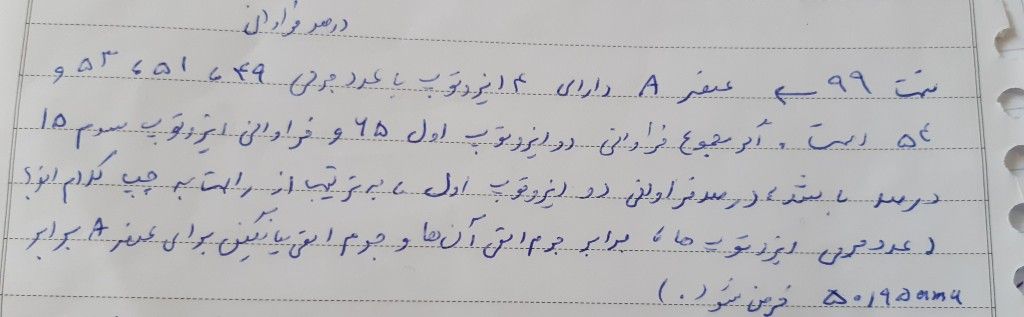 درصد فراوانی
تست ۹۹ ← عنصر A دارای ۴ ایزوتوپ با عدد جرمی ۴۹، ۵۱، ۵۳ و
۵۴ است. اگر مجموع فراوانی دو ایزوتوپ اول ۶۵ و فراوانی ایزوتوپ سوم ۱۵
درصد باشد، درصد فراوانی دو ایزوتوپ اول، به ترتیب از راست به چپ کدام اند؟
(عدد جرمی ایزوتوپ ها، برابر جرم اتمی آن ها و جرم اتمی میانگین برای عنصر A برابر
۵۰،۹۵amu فرض شود.)